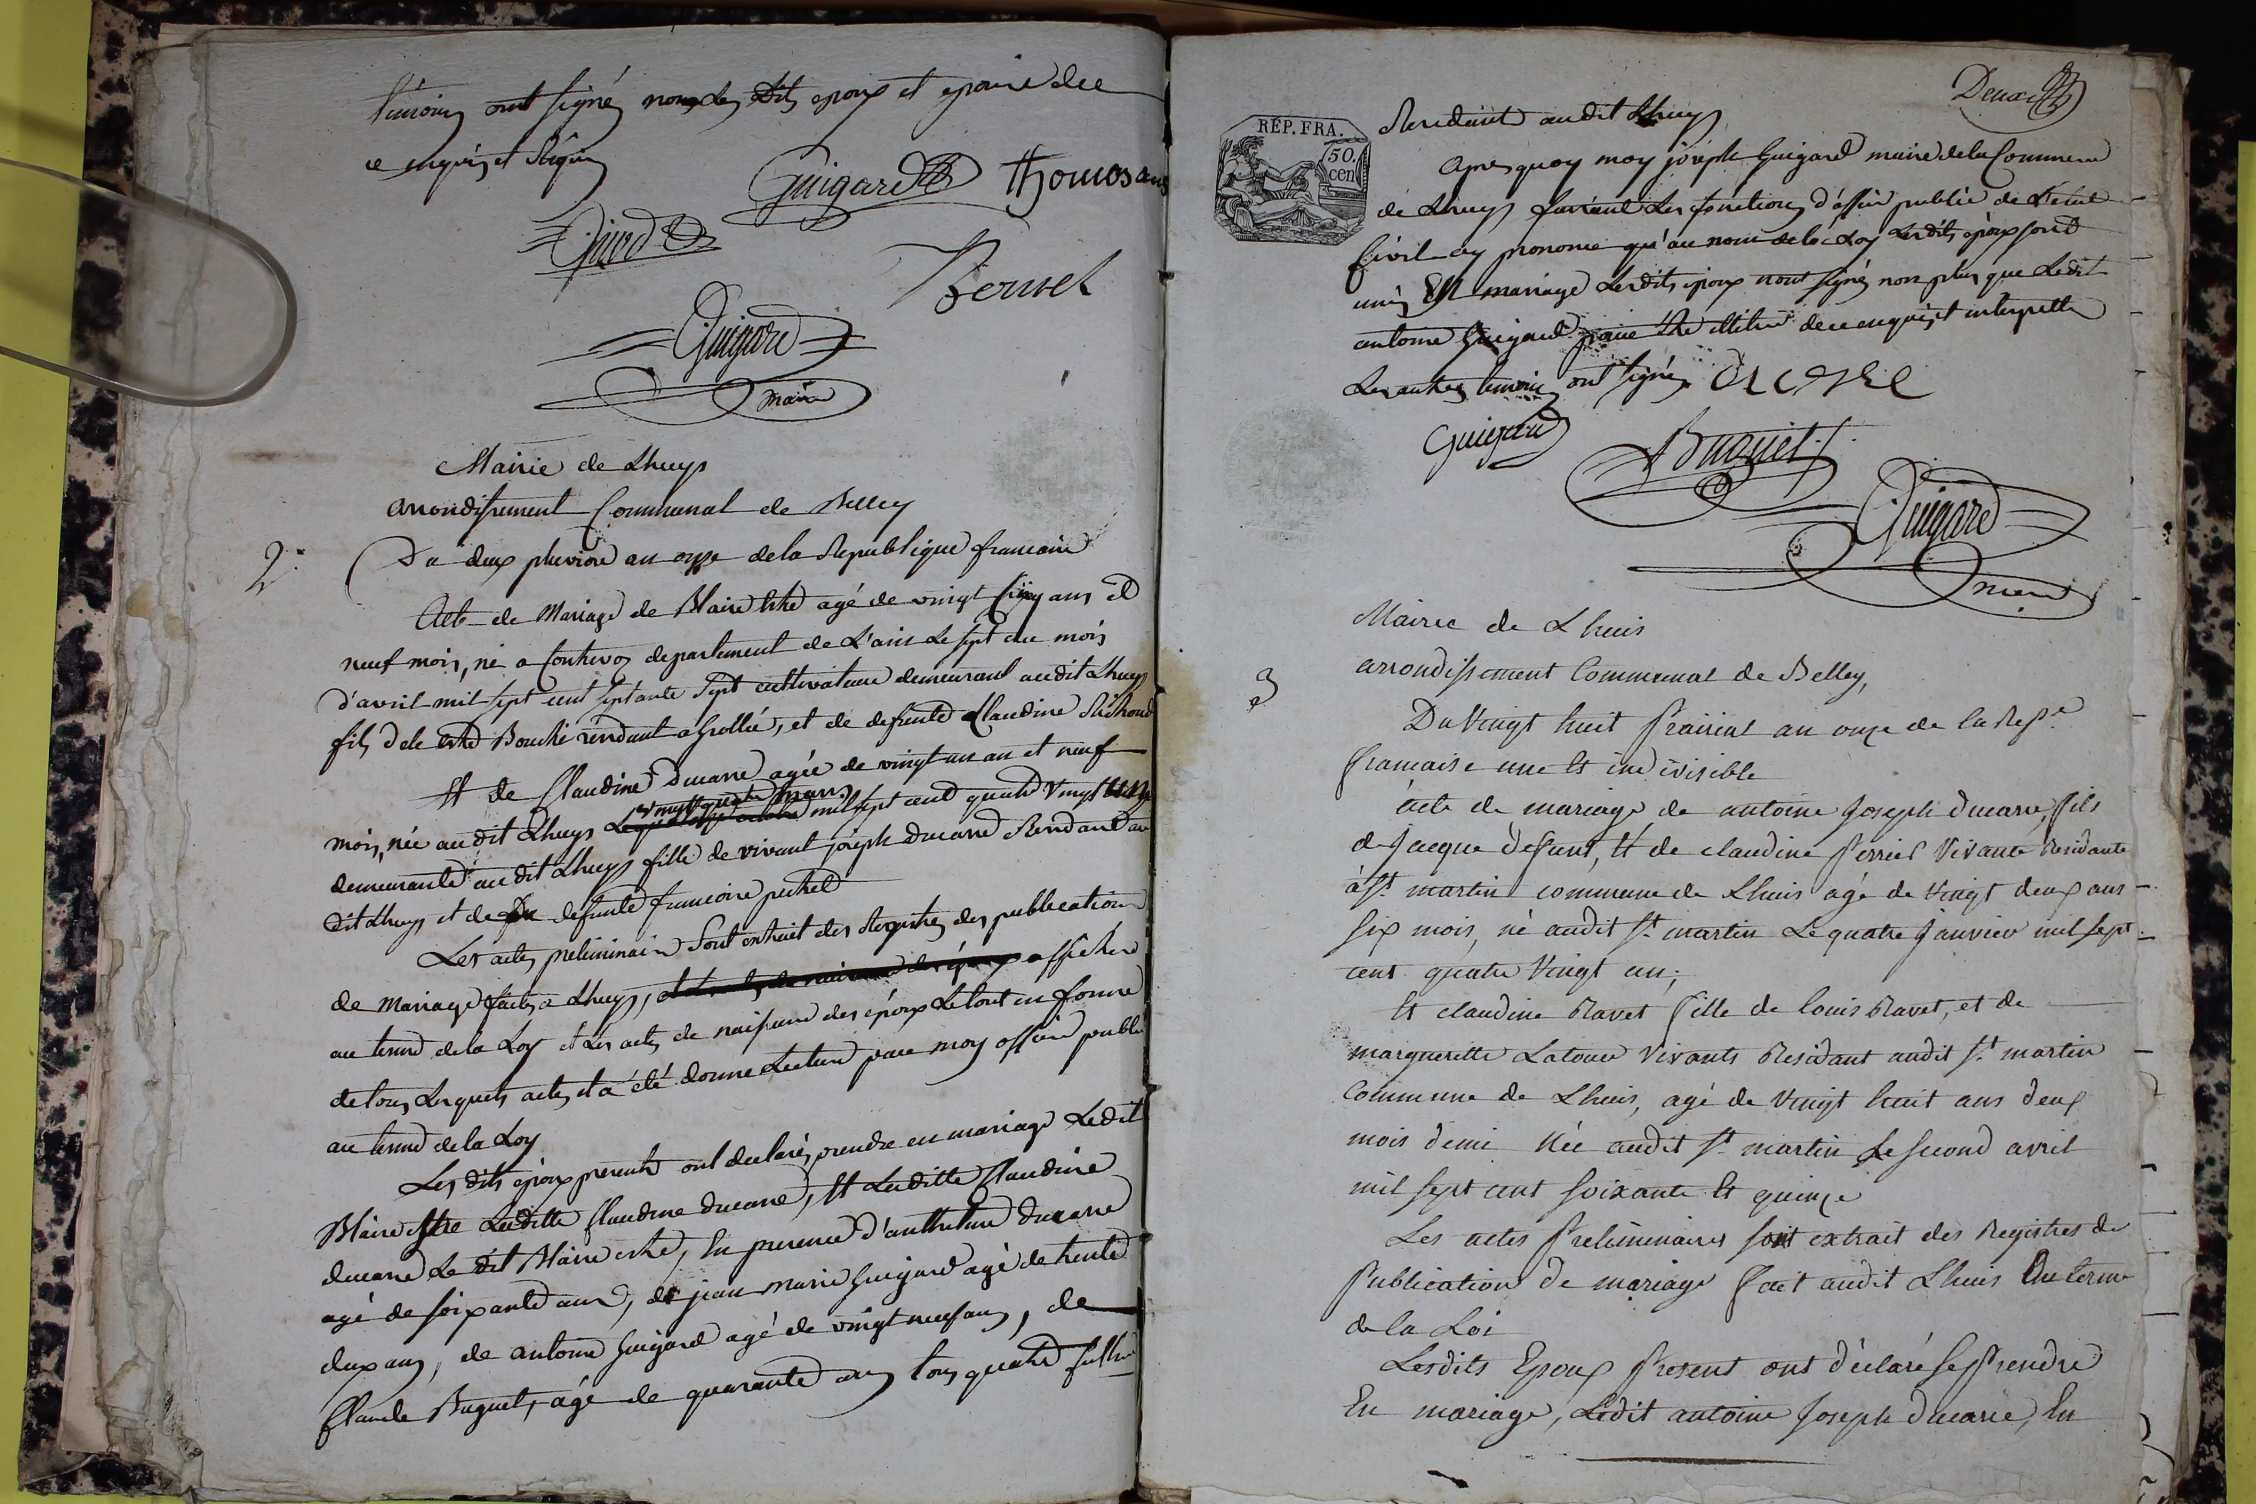 témoins ont signé non les dits epoux et epouse de
ce enquis et Réquis
Guigard Thomosans
Girod
Bernel
Guigard
maire
Mairie de Lhuys
arrondissement Communal de Belley
2.
Du deux pluviose an onze de la Republique francaise
Acte de Mariage de Blaise estre agé de vingt Cinq ans et
neuf mois, né a Conthevoz departement de L'ain Le sept du mois
d'avril mil sept cent septante Sept cultivateur demeurant au dit Lhuys
fils de le Bouché résidant a Grollié, et de defunte Claudine
Et de Claudine ducarre agée de vingt un an et neuf
mois, née au dit Lhuys mil sept cent quatre Vingt
demeurante au dit Lhuys fille de vivant joséph ducarre Residant au
dit Lhuys et de defunte francoise
Les actes preliminaire Sont extrait des Registres des publication
de Mariage faites a Lhuys, affichés
au terme de la Loy et Les actes de naissance des époux Le tout en forme
de tous Lesquels actes il a été donné Lecture par moy officier public
au terme de la Loy
Les dits époux present ont declaré prendre en mariage Ledit
Blaise estre Laditte Claudine ducarre, Et Laditte Claudine
ducarre Le dit Blaise estre, En presence d'anthelme ducarre
agé de soixante ans, de jean marie Guigard agé de trente
deux ans, de antoine Guigard agé de vingt neuf ans, de
Claude Buguet, agé de quarante ans tous quatre
Deux
RÉP. FRA.
50. cen
Residant au dit Lhuys
Apres quoy moy joséph Guigard maire de la Commune
de Lhuys faisant Les fonctions d'officier public de L'etat
Civil ay prononcé qu'au nom de la Loy Les dits époux sont
unis En mariage Les dits époux n'ont signé non plus que Ledit
antoine Guigard pour de ce enquis et interpellé
Les autres temoins ont signé
Guigard
Buguet
Guigard
maire
Mairee de Lhuis
arrondissement Communal de Belley,
3
Du Vingt huit Prairial an onze de la Repe
francaise une Et indivisible
acte de mariage de antoine Joseph ducarre, fils
de Jacque défunt, Et de claudine Perrier Vivante Residante
à St martin commune de Lhuis agé de Vingt deux ans
six mois, né audit St martin Le quatre Janvier mil sept
cent quatre Vingt un;
Et claudine Ravet fille de louis Ravet, et de
marguerette Latour Vivants Residant audit St martin
Commune de Lhuis, agé de Vingt huit ans deux
mois demi Née audit St martin Le second avril
mil sept cent soixante Et quinze
Les actes Preliminaires sont extrait des Registres de
Publication de mariage fait audit Lhuis Au terme
de la Loi
Lesdits Epoux Present ont déclaré se Prendre
En mariage, Ledit antoine Joseph ducarre, En